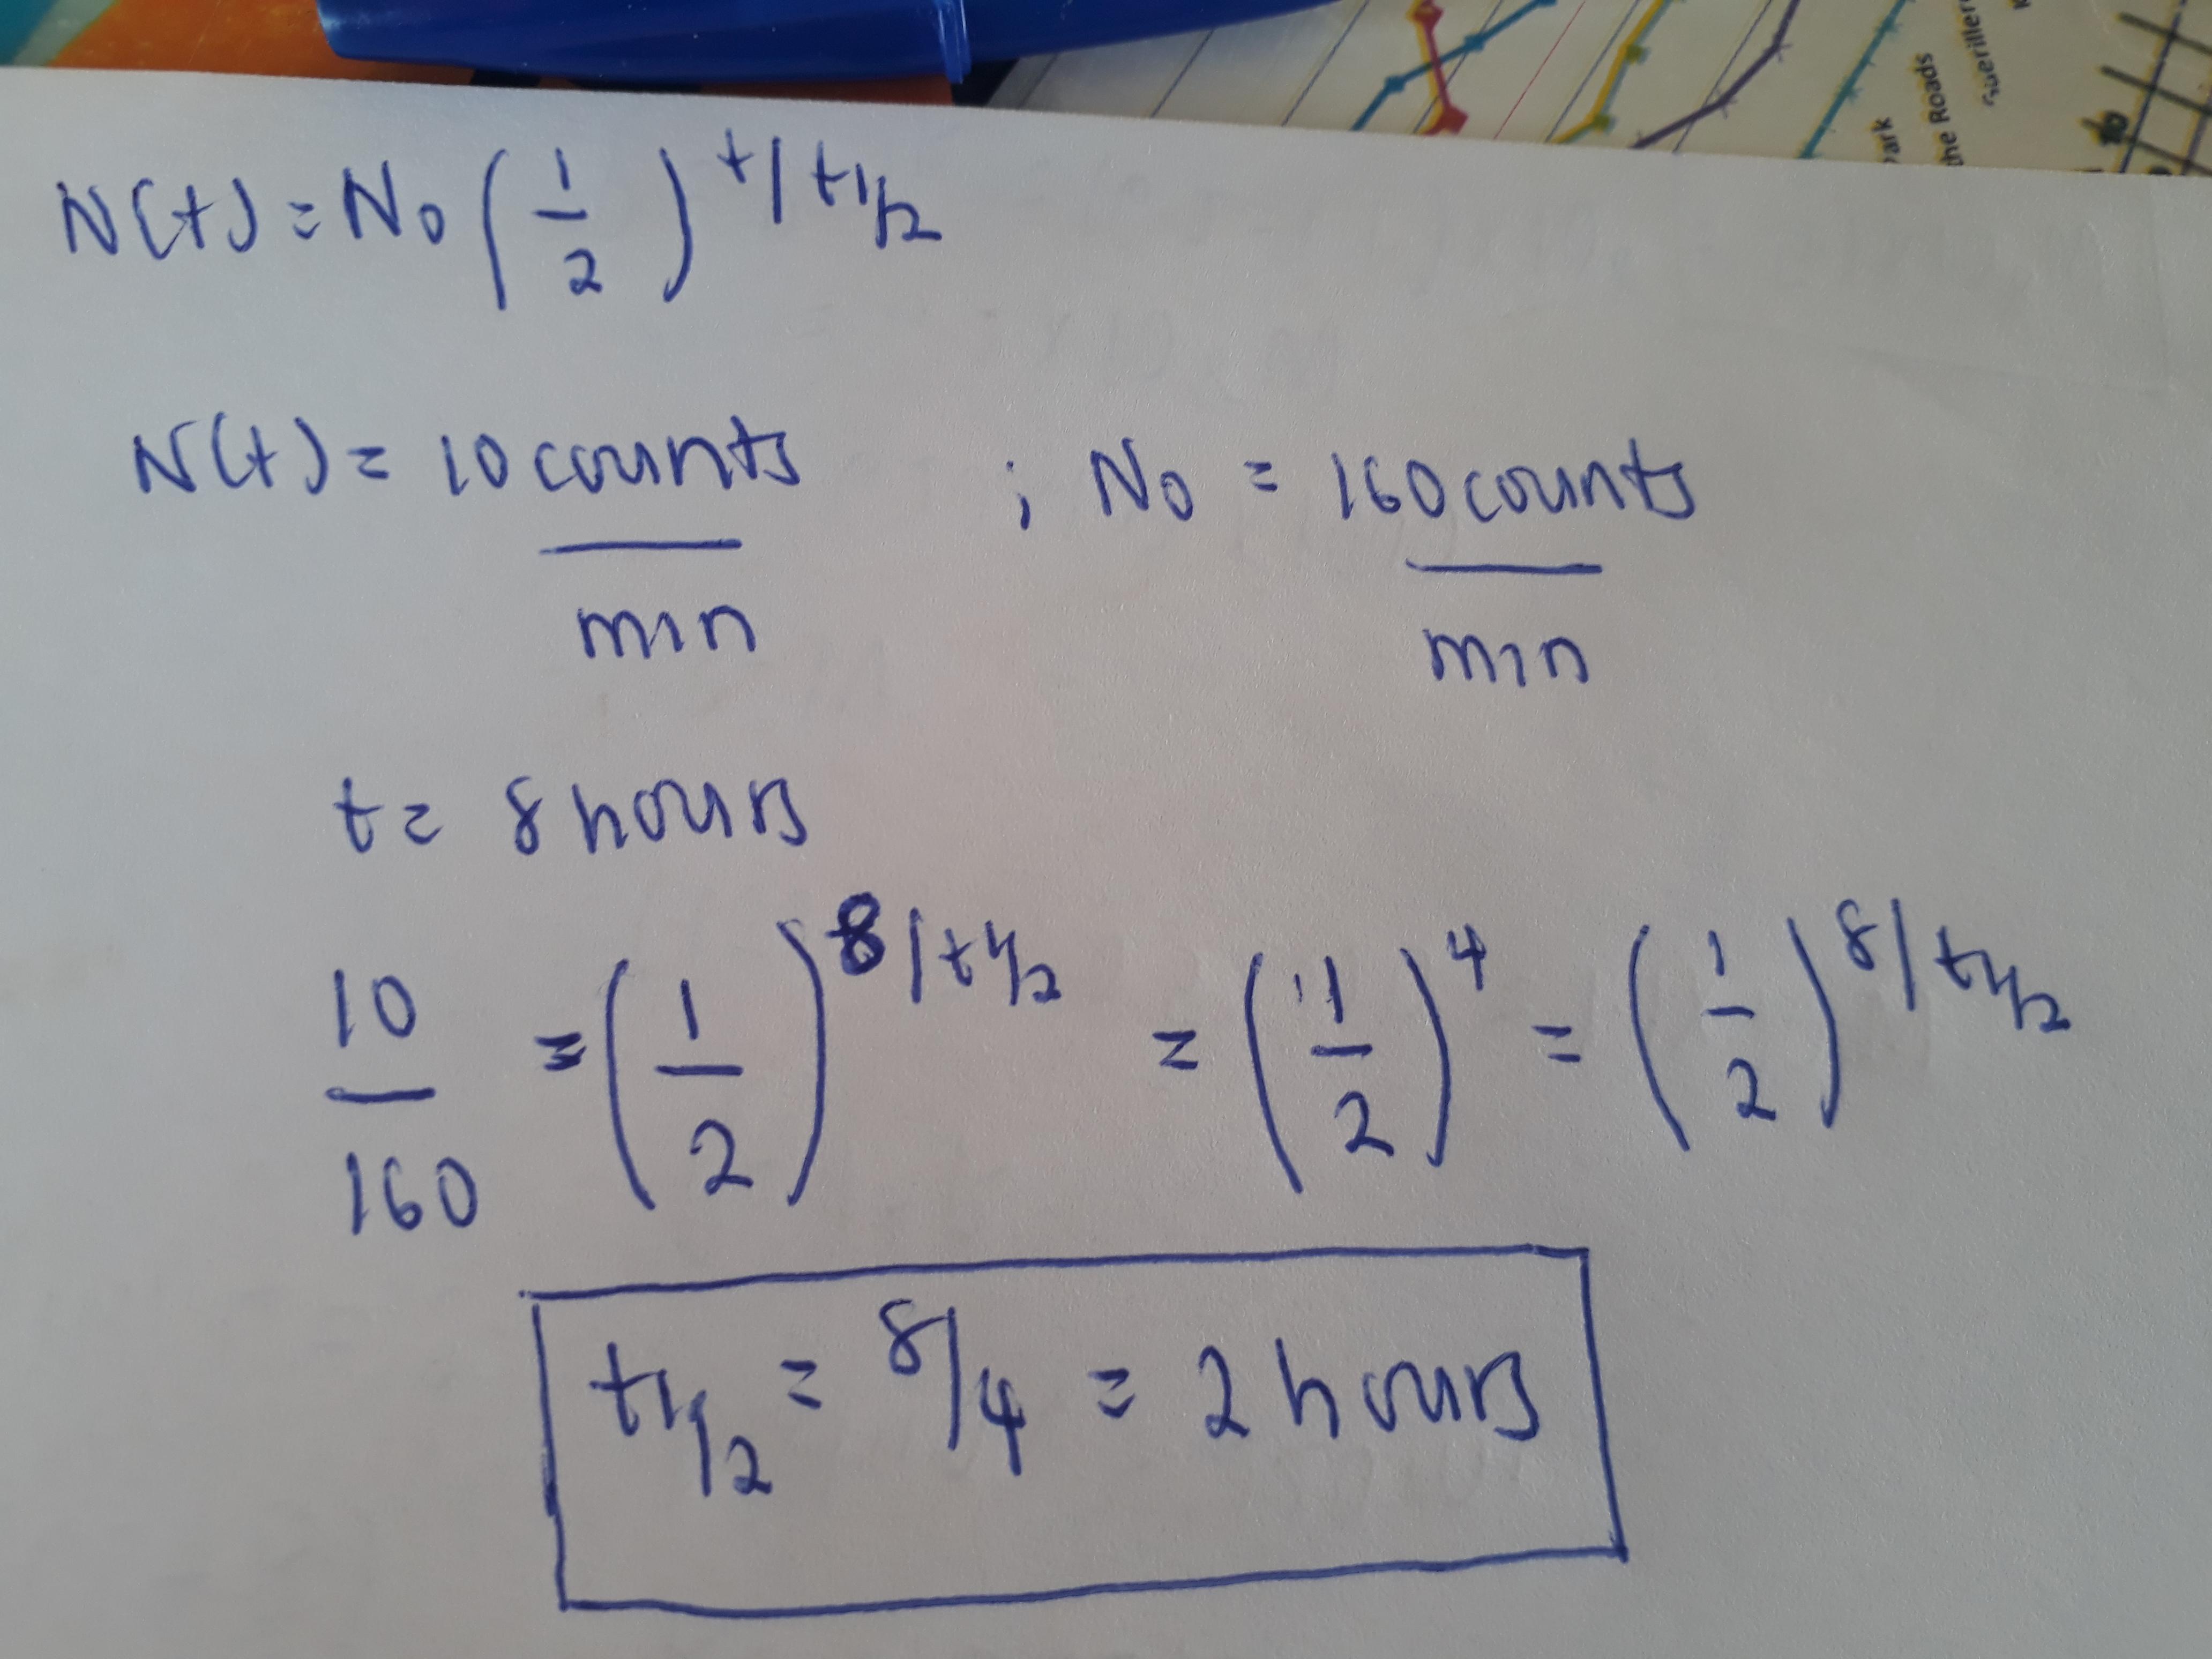 ark
the Roads
N(t) = N₀ (1/2)^t/t1/2
N(t) = 10 counts/min ; N₀ = 160 counts/min
t = 8 hours
10/160 = (1/2)^8/t1/2 = (1/2)^4 = (1/2)^8/t1/2
t1/2 = 8/4 = 2 hours